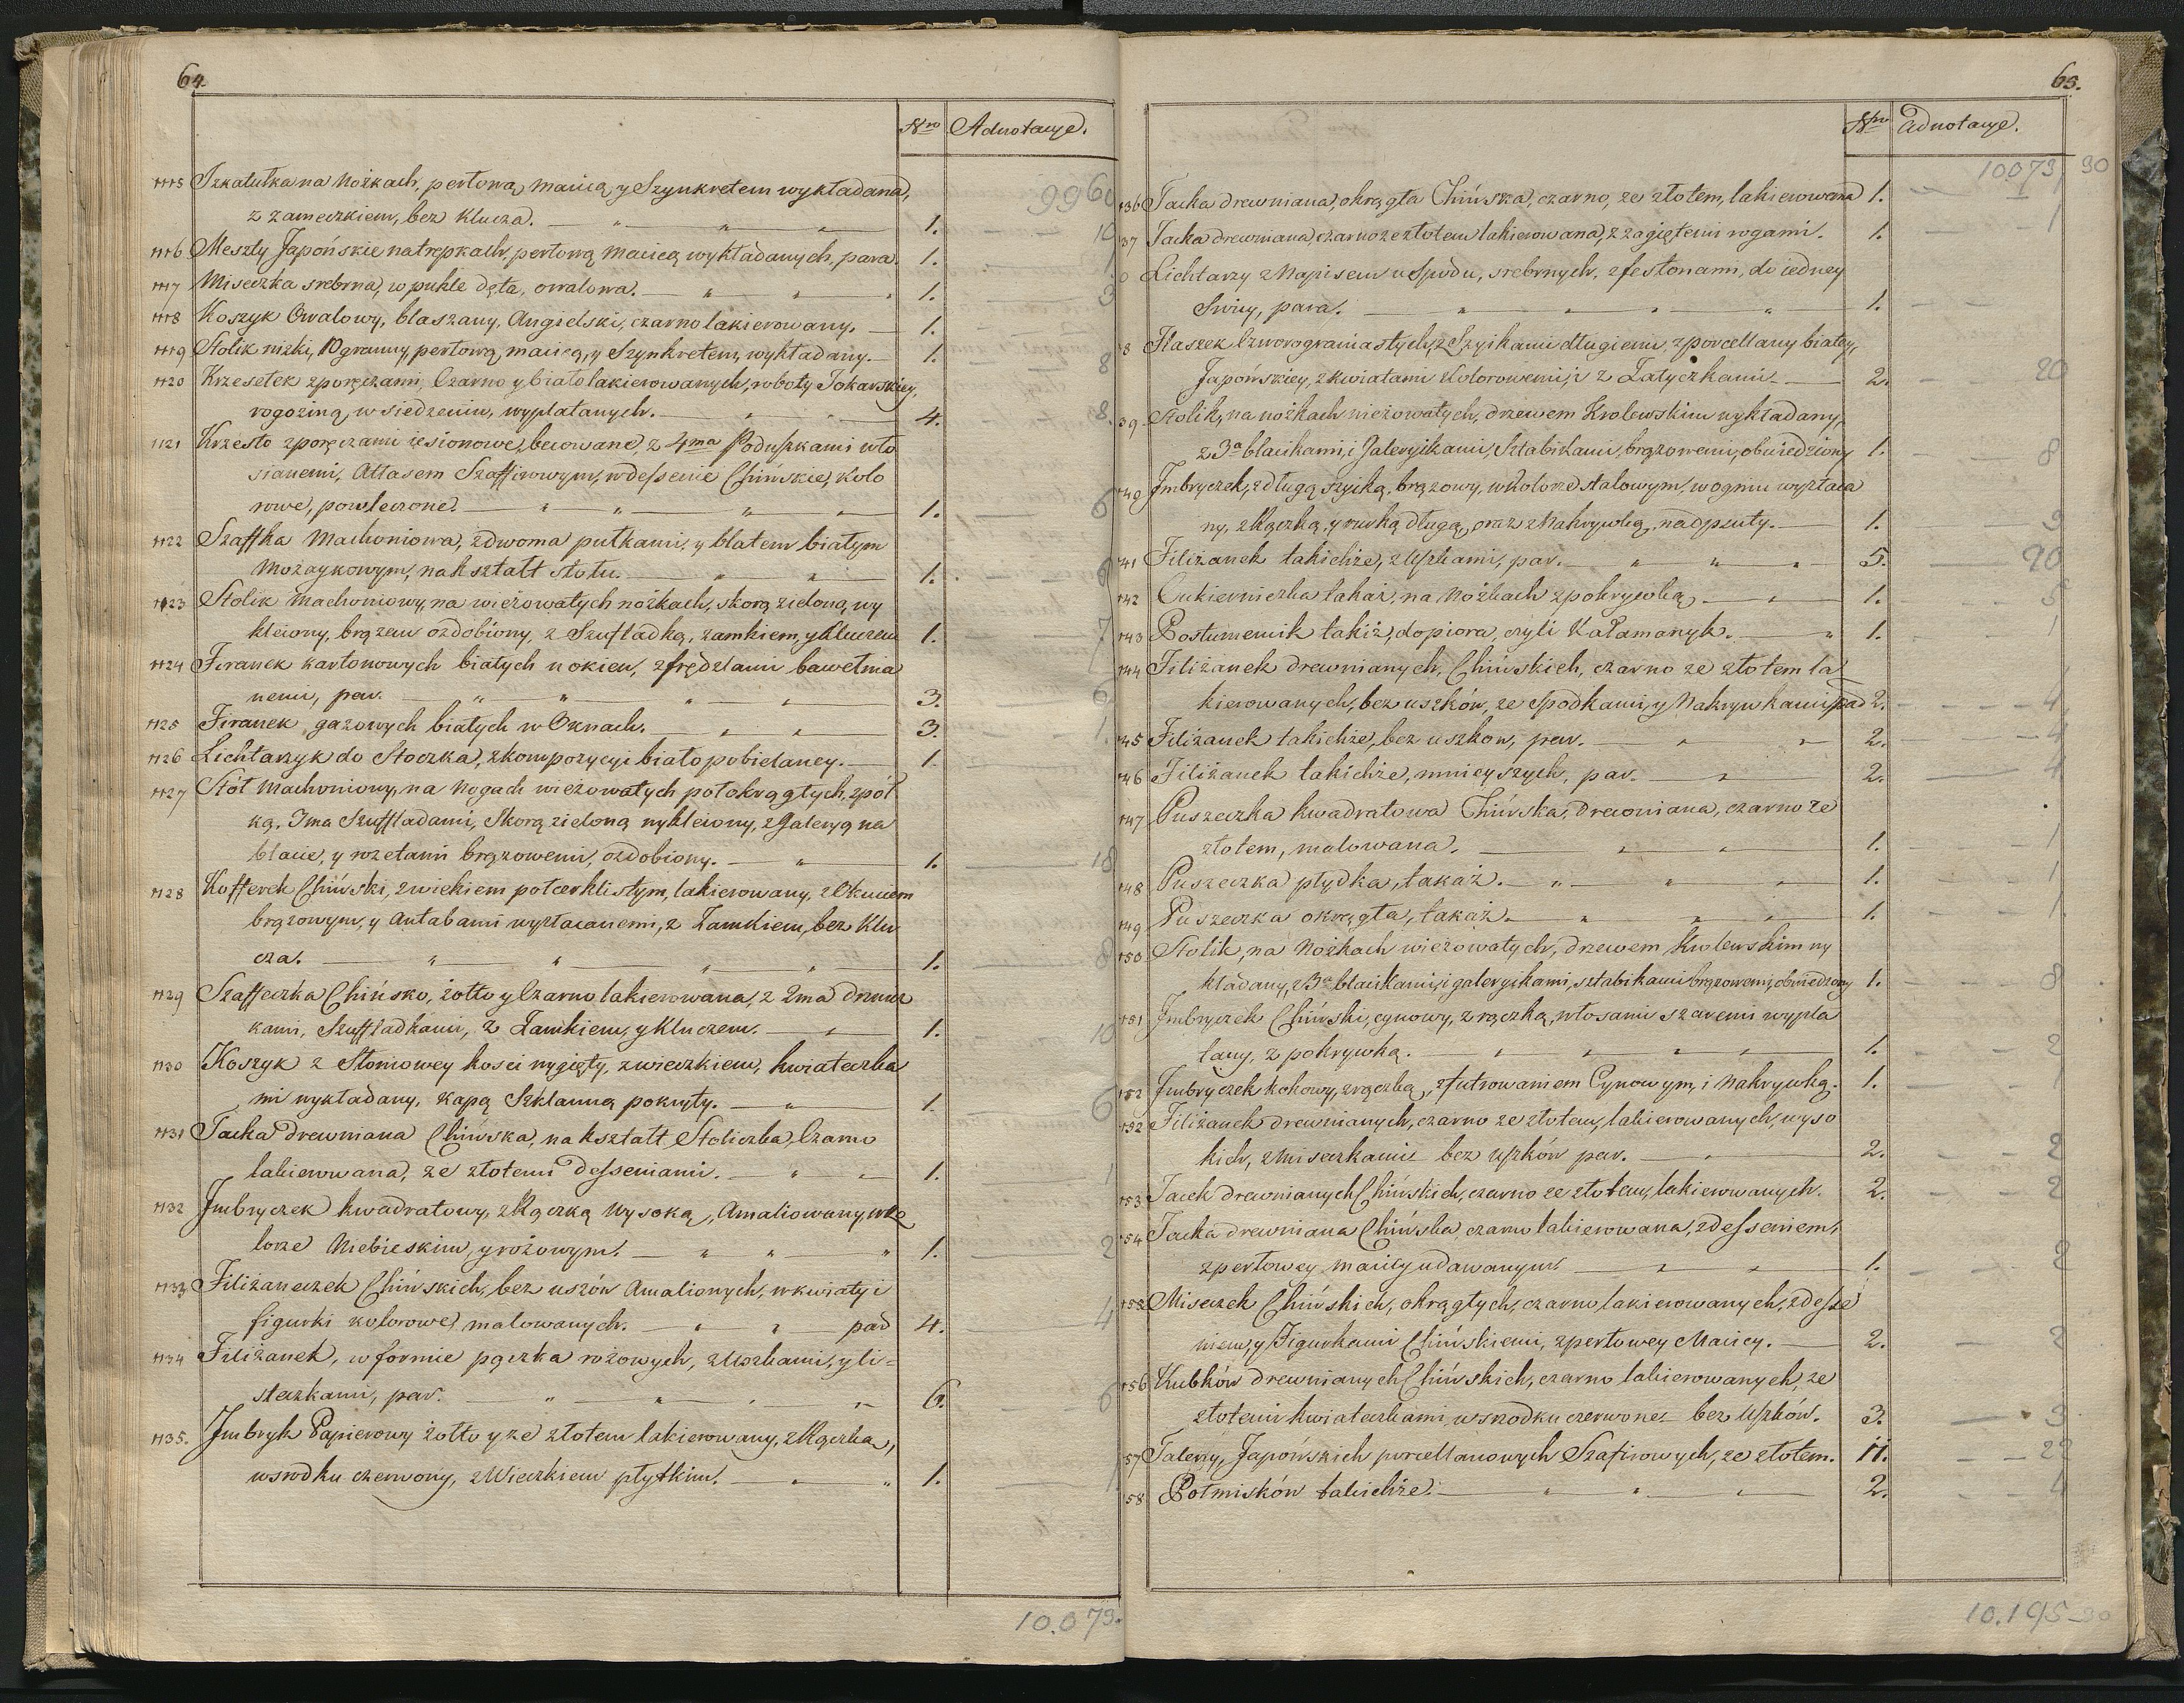 64.
Nro Adnotacye.
1115 Szkatułka na Nóżkach, perłową macicą y Szynkretem wykładana, 9960
z zameczkiem, bez Klucza. — " " " 1. 10
1116 Meszty Japońskie na trepkach, perłową macicą wykładanych, para. 1.
1117 Miseczka srebrna, w puhle dęta, owalowa. — " " " 1. 3
1118 Koszyk Owalowy, blaszany, Angielski, czarno lakierowany. — 1.
1119 Stolik nizki, 10 granny, perłową macicą, y Szynkretem wykładany. — 1. 8
1120 Krzesełek z poręczami, Czarno y biało lakierowanych, roboty Tokarskiey,
rogoziną, w siedzeniu, wyplatanych. — " " 4. 8.
1121 Krzesło z poręczami iesionowe, beicowane, z 4ma Poduszkami wło
sianemi, Attasem Szaffirowym, w dessenie Chińskie, kolo
rowe, powleczone. — " " " " 1. 6
1122 Szaffka Machoniowa, z dwoma pułkami, y blatem białym
Mozaykowym, na kształt stołu. — " " 1. 6
1123 Stolik Machoniowy, na wieżowatych nóżkach, skorą zieloną wy
kleiony, brązem ozdobiony, z Szufladką, zamkiem, y Kluczem 1. 7
1124 Firanek kartonowych białych u okien, z frędzlami bawełnia
nemi, par. — " " " " 3. 6
1125 Firanek gazowych białych w Oknach. — " " 3. 1.
1126 Lichtarzyk do Stoczka, z kompozycyi biało pobielaney. — 1.
1127 Stół Machoniowy, na Nogach wieżowatych połokrągłych, z pół
ką, 3ma Szuffladami, Skorą zieloną wykleiony, z Galeryą na
blacie, y rozetami brązowemi, ozdobiony. — " 1. 18
1128 Kofferek Chiński, z wiekiem połcerklistym, lakierowany, z Okuciem
brązowym, y Antabami wyzłacanemi, z Zamkiem, bez Klu
cza. — " " " " 1. 8
1129 Szaffeczka Chińsko, żółto y Czarno lakierowana, z 2ma drzwicz
kami, Szuffladkami, z Zamkiem, y Kluczem. — " 1. 10
1130 Koszyk z Słoniowey kości wygięty, z wieczkiem, kwiateczka
mi wykładany, kapą Szklanną pokryty. — " 1. 6
1131 Tacka drewniana Chińska, na kształt Stoliczka, Czarno
lakierowana, ze złotemi desseniami. — " " 1. 1
1132 Jmbryczek kwadratowy, z Rączką wysoką, Amaliowany, w ko
lorze Niebieskim, y różowym. — " " " 1. 2
1133 Filiżaneczek Chińskich, bez uszów Amalionych, w kwiaty i
figurki kolorowe, malowanych. — " " par 4. 4
1134 Filiżanek, w formie pączka różowych, z Uszkami, y li=
steczkami, par. — " " " " 6. 6
1135. Jmbryk Papierowy żółto y ze złotem lakierowany, z Rączką,
w środku czerwony, z Wieczkiem płytkim. — " " 1. 1
10.073.
65.
Nro Adnotacye.
10.073, 90
1136 Tacka drewniana, okrągła Chińska, czarno, ze złotem, lakierowana 1. — 1
37 Tacka drewniana, czarno ze złotem lakierowana, z zagiętemi rogami. 1. — 1
Lichtarzy z Napisem u Spodu, srebrnych, z festonami, do iedney
Swiey, para. — " " " " 1. —
8 Flaszek Czworograniastych, z Szyikami długiemi, z porcellany białey,
Japońskiey, z kwiatami Kolorowemi, i z Zatyczkami. — 2. 20
39 Stolik, na nóżkach wieżowatych, drzewem Krolewskim wykładany,
z 3a blacikami, i Galeryikami, Sztabikami, brązowemi, obwiedziony 1. 8
1140 Jmbryczek, z długą szyiką, brązowy, w kolorze stalowym, w ogniu wyzłaca
ny, z Rączką, y rurką długą, oraz z Nakrywką, nadpsuty. — 1. 3
1141 Filiżanek takichże, z Uszkami, par. — " " " 5. 20
1142 Cukierniczka takaż, na Nóżkach z pokrywką. — " 1. 5
1143 Postumencik takiż, do piora, czyli Kałamarzyk. — " 1. 1
1144 Filiżanek drewnianych, Chińskich, czarno ze złotem la
kierowanych, bez uszków, ze Spodkami, y Nakrywkami, par 2. 4
1145 Filiżanek takichże, bez uszkow, par. — " " 2. 4
1146 Filiżanek takichże, mnieyszych, par. — " 2. 4
1147 Puszeczka kwadratowa Chińska, drewniana, czarno ze
złotem, malowana. — " " 1. 1
1148 Puszeczka płydka, takaż. — " " " 1. 1
1149 Puszeczka okrągła, takaż. — " " " 1. 1.
1150 Stolik, na Nóżkach wieżowatych, drzewem Krolewskim wy
kładany, z 3a blacikami, i galeryikami, sztabikami brązowemi, obwiedziony 1. 8
1151 Jmbryczek Chiński, cynowy, z rączką, włosami szaremi wypla
tany, z pokrywką. — " " " " 1. 2
1152 Jmbryczek kokowy, z rączką, z futrowaniem Cynowym, i Nakrywką. 1. 1
1152 Filiżanek drewnianych, czarno ze złotem, lakierowanych, wyso
kich, z Miseczkami bez Uszków par. — " 2. 2
1153 Tacek drewnianych Chińskich, czarno ze złotem, lakierowanych. 2. 2
1154 Tacka drewniana Chińska, czarno lakierowana, z desseniem,
z perłowey macicy udawanym. — " " 1. 2
1155 Miseczek Chińskich, okrągłych, czarno lakierowanych, z desse
niem, y Figurkami Chińskiemi, z perłowey Macicy. — 2. 2
1156 Kubków drewnianych Chińskich, czarno lakierowanych, ze
złotemi kwiateczkami, w srzodku czerwone. — bez Uszków. 3. 3
57 Talerzy, Japońskich porcellanowych Szafirowych, ze złotem. 11. 22
58 Połmisków takichże. — " " " 2. 4
10.195 – 90